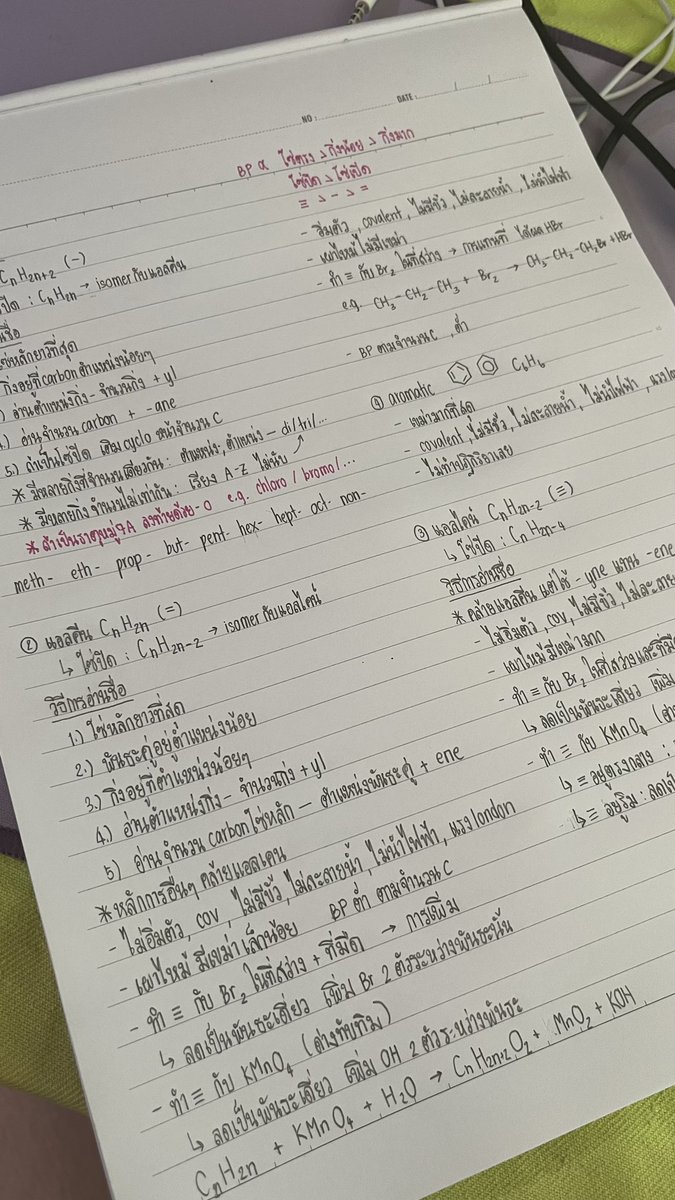 NO :
DATE : / /
BP α โซ่ตรง > กิ่งน้อย > กิ่งมาก
โซ่ปิด > โซ่เปิด
≡ > - > =
CnH2n+2 (-)
ปิด : CnH2n → isomer กับแอลคีน
ชื่อ
โซ่หลักยาวที่สุด
กิ่งอยู่ที่ carbon ตำแหน่งน้อยๆ
) อ่านตำแหน่งกิ่ง - จำนวนกิ่ง + yl
.) อ่านจำนวน carbon + -ane
5.) ถ้าเป็นโซ่ปิด เติม cyclo หน้าจำนวน C
* มีหลายกิ่งที่จำนวนเดียวกัน : ตำแหน่ง, ตำแหน่ง – di/tri/...
* มีหลายกิ่ง จำนวนไม่เท่ากัน : เรียง A-Z ไม่นับ
* ถ้าเป็นธาตุหมู่ 7A ลงท้ายด้วย -o e.g. chloro / bromo/...
meth- eth- prop- but- pent- hex- hept- oct- non-
② แอลคีน CnH2n (=)
↳ โซ่ปิด : CnH2n-2 → isomer กับแอลไคน์
วิธีการอ่านชื่อ
1.) โซ่หลักยาวที่สุด
2.) พันธะคู่อยู่ตำแหน่งน้อย
3.) กิ่งอยู่ที่ตำแหน่งน้อยๆ
4.) อ่านตำแหน่งกิ่ง - จำนวนกิ่ง + yl
5) อ่านจำนวน carbon โซ่หลัก – ตำแหน่งพันธะคู่ + ene
* หลักการอื่นๆ คล้ายแอลเคน
- ไม่อิ่มตัว, cov, ไม่มีขั้ว, ไม่ละลายน้ำ, ไม่นำไฟฟ้า, แรง london
- เผาไหม้ มีเขม่าเล็กน้อย BP ต่ำ ตามจำนวน C
- ทำ ≡ กับ Br2 ในที่สว่าง + ที่มืด → การเพิ่ม
↳ ลดเป็นพันธะเดี่ยว เพิ่ม Br 2 ตัวระหว่างพันธะนั้น
- ทำ ≡ กับ KMnO4 (ด่างทับทิม)
↳ ลดเป็นพันธะเดี่ยว เพิ่ม OH 2 ตัวระหว่างพันธะ
CnH2n + KMnO4 + H2O → CnH2n+2O2 + MnO2 + KOH
- อิ่มตัว, covalent, ไม่มีขั้ว, ไม่ละลายน้ำ, ไม่นำไฟฟ้า
- เผาไหม้ไม่มีเขม่า
- ทำ ≡ กับ Br2 ในที่สว่าง → การแทนที่ ได้ผล HBr
e.g. CH3-CH2-CH3 + Br2 → CH3-CH2-CH2Br + HBr
- BP ตามจำนวน C, ต่ำ
④ aromatic C6H6
- เขม่ามากที่สุด
- covalent, ไม่มีขั้ว, ไม่ละลายน้ำ, ไม่นำไฟฟ้า,
- ไม่ทำปฏิกิริยาเลย
③ แอลไคน์ CnH2n-2 (≡)
↳ โซ่ปิด : CnH2n-4
วิธีการอ่านชื่อ
* คล้ายแอลคีน แต่ใช้ -yne แทน -ene
- ไม่อิ่มตัว, cov, ไม่มีขั้ว, ไม่ละลาย
- เผาไหม้ มีเขม่ามาก
- ทำ ≡ กับ Br2 ในที่สว่างและที่มืด
↳ ลดเป็นพันธะเดี่ยว เพิ่ม
- ทำ ≡ กับ KMnO4 (ด่าง
↳ ≡ อยู่ตรงกลาง :
↳ ≡ อยู่ริม : ลดเป็